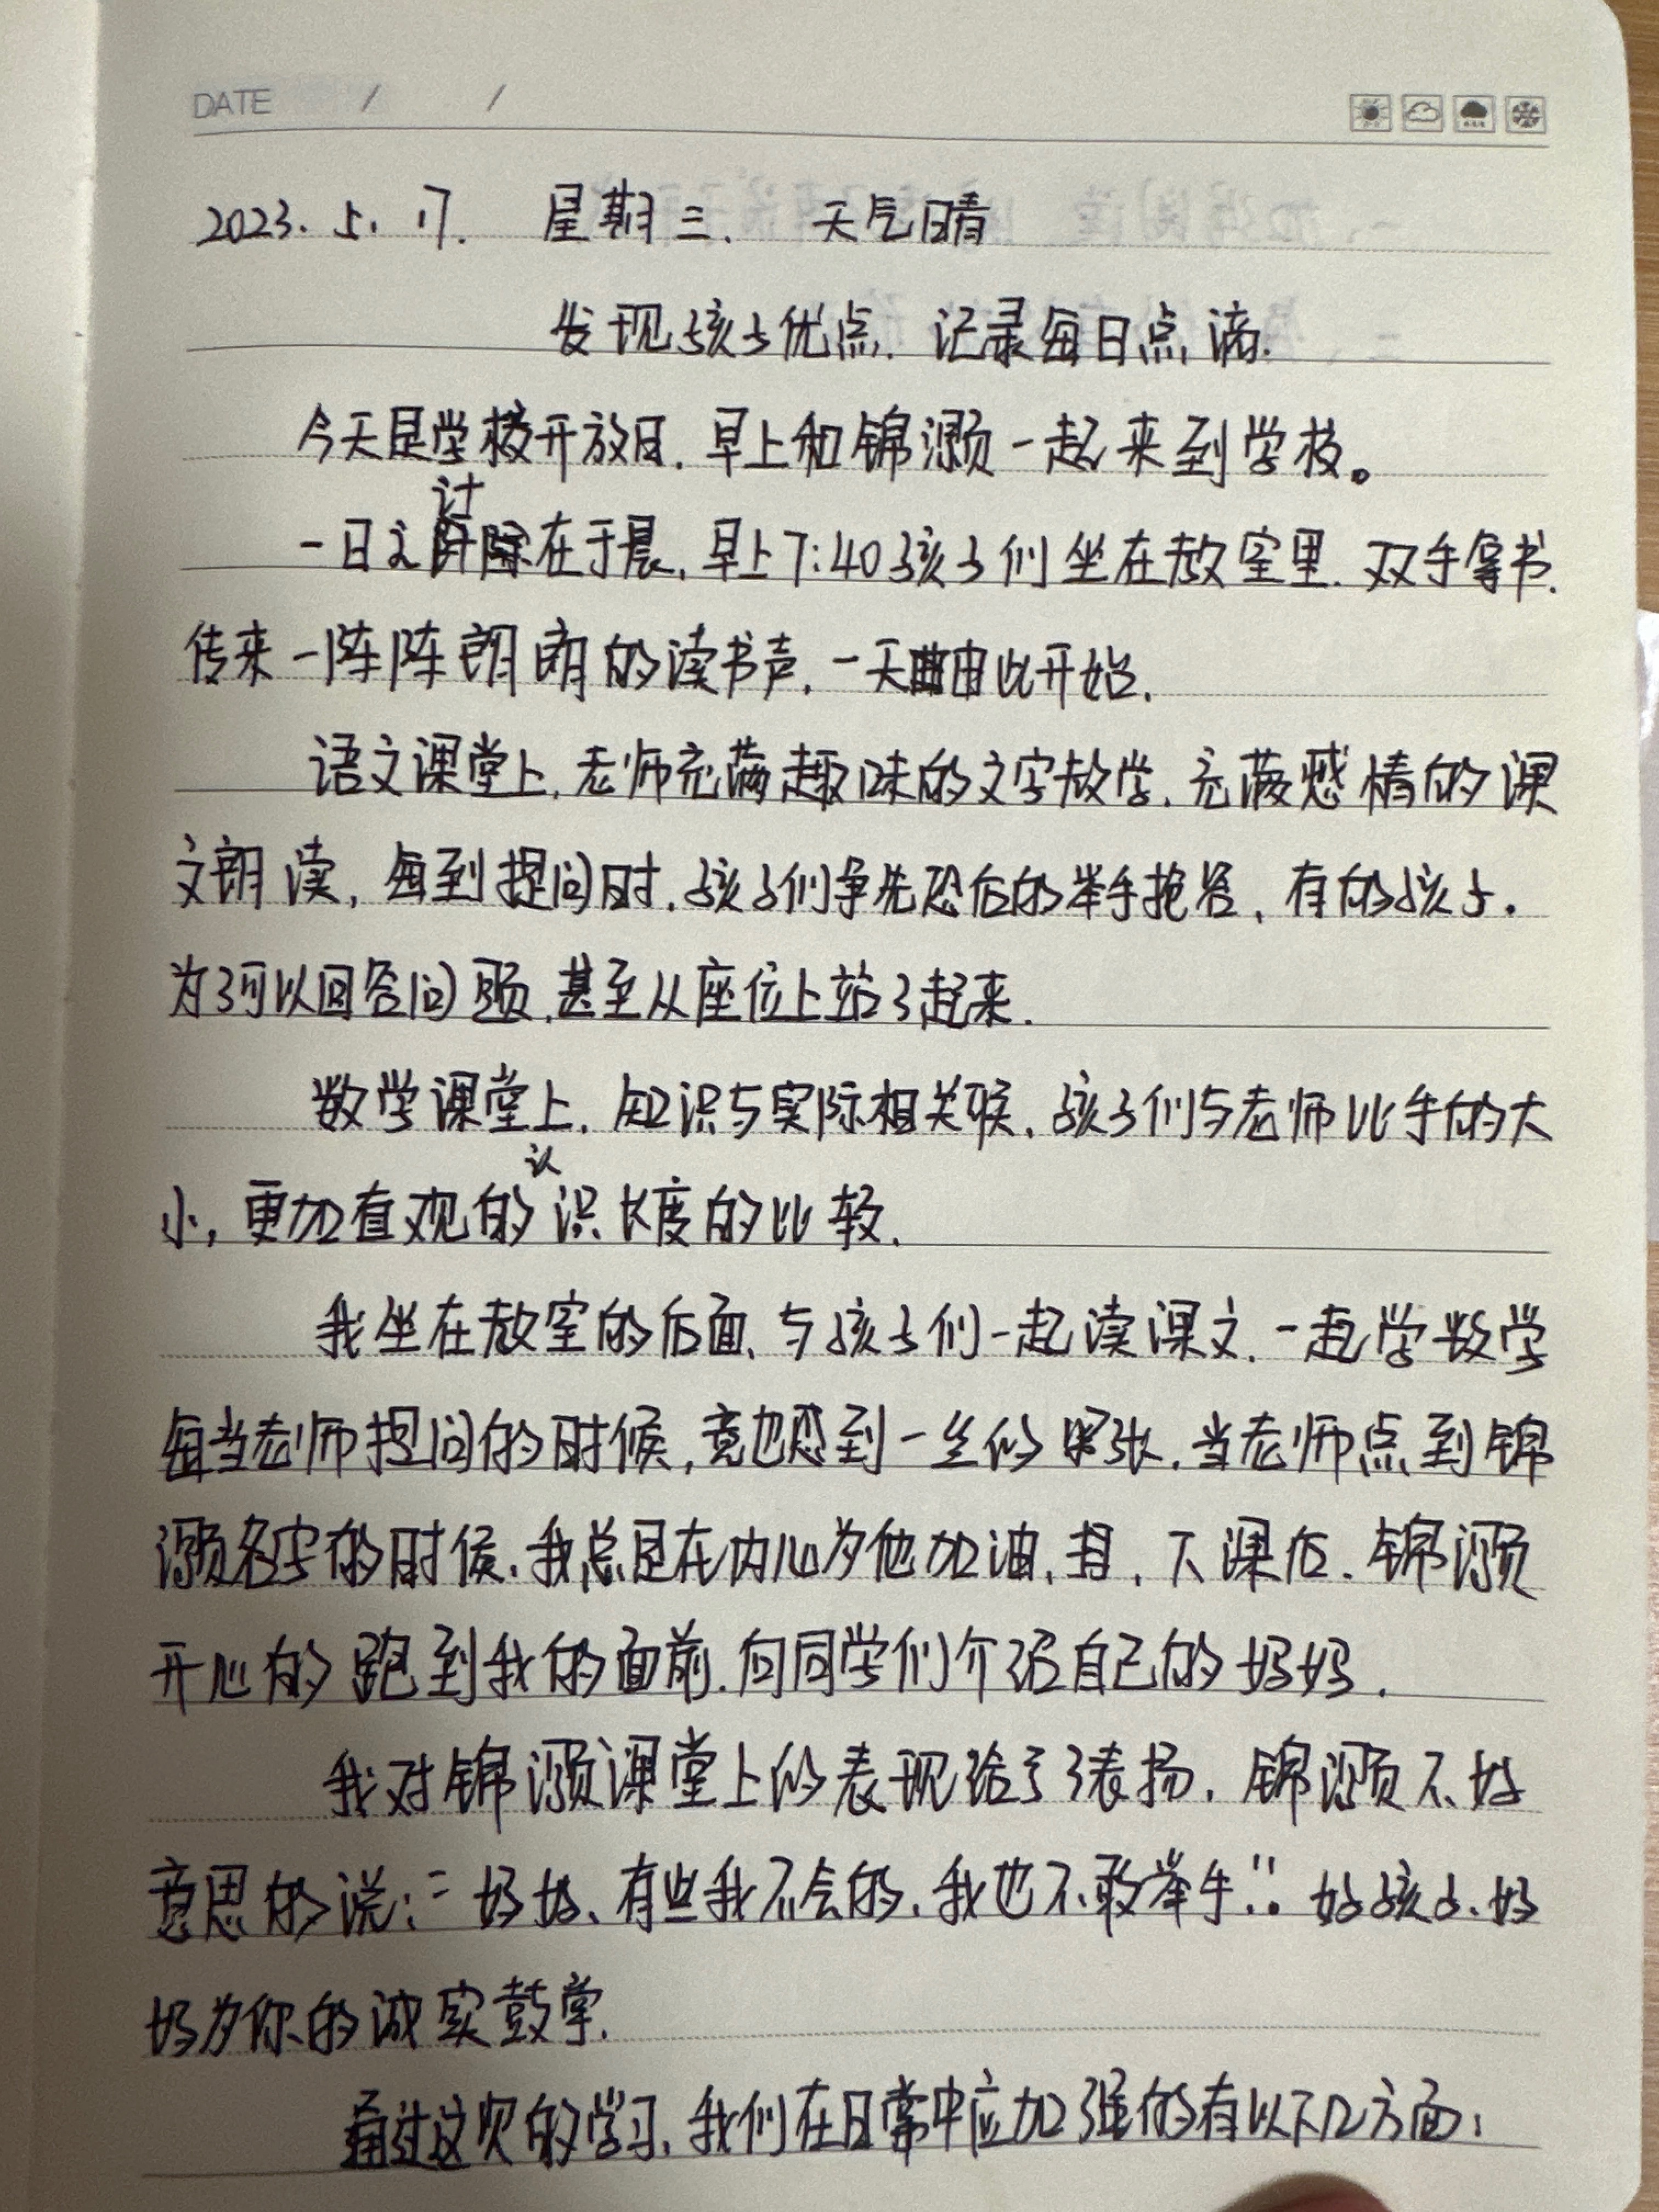 DATE / /
2023. 5. 17. 星期三. 天气晴
发现孩子优点. 记录每日点滴.
今天是学校开放日. 早上和锦灏一起来到学校。
一日之计在于晨, 早上7:40孩子们坐在教室里. 双手拿书.
传来一阵阵朗朗的读书声. 一天由此开始.
语文课堂上, 老师充满趣味的文字教学. 充满感情的课
文朗读, 每到提问时. 孩子们争先恐后的举手抢答、有的孩子.
为了可以回答问题, 甚至从座位上站了起来.
数学课堂上. 知识与实际相关联. 孩子们与老师比手的大
小, 更加直观的认识长度的比较.
我坐在教室的后面、与孩子们一起读课文. 一起学数学
每当老师提问的时候, 竟也感到一丝的紧张. 当老师点到锦
灏名字的时候. 我总是在内心为他加油. 下课后. 锦灏
开心的跑到我的面前. 向同学们介绍自己的妈妈.
我对锦灏课堂上的表现给予了表扬. 锦灏不好
意思的说: "妈妈、有些我不会的. 我也不敢举手". 好孩子. 妈
妈为你的诚实鼓掌.
通过这次的学习. 我们在日常中应加强的有以下几方面: